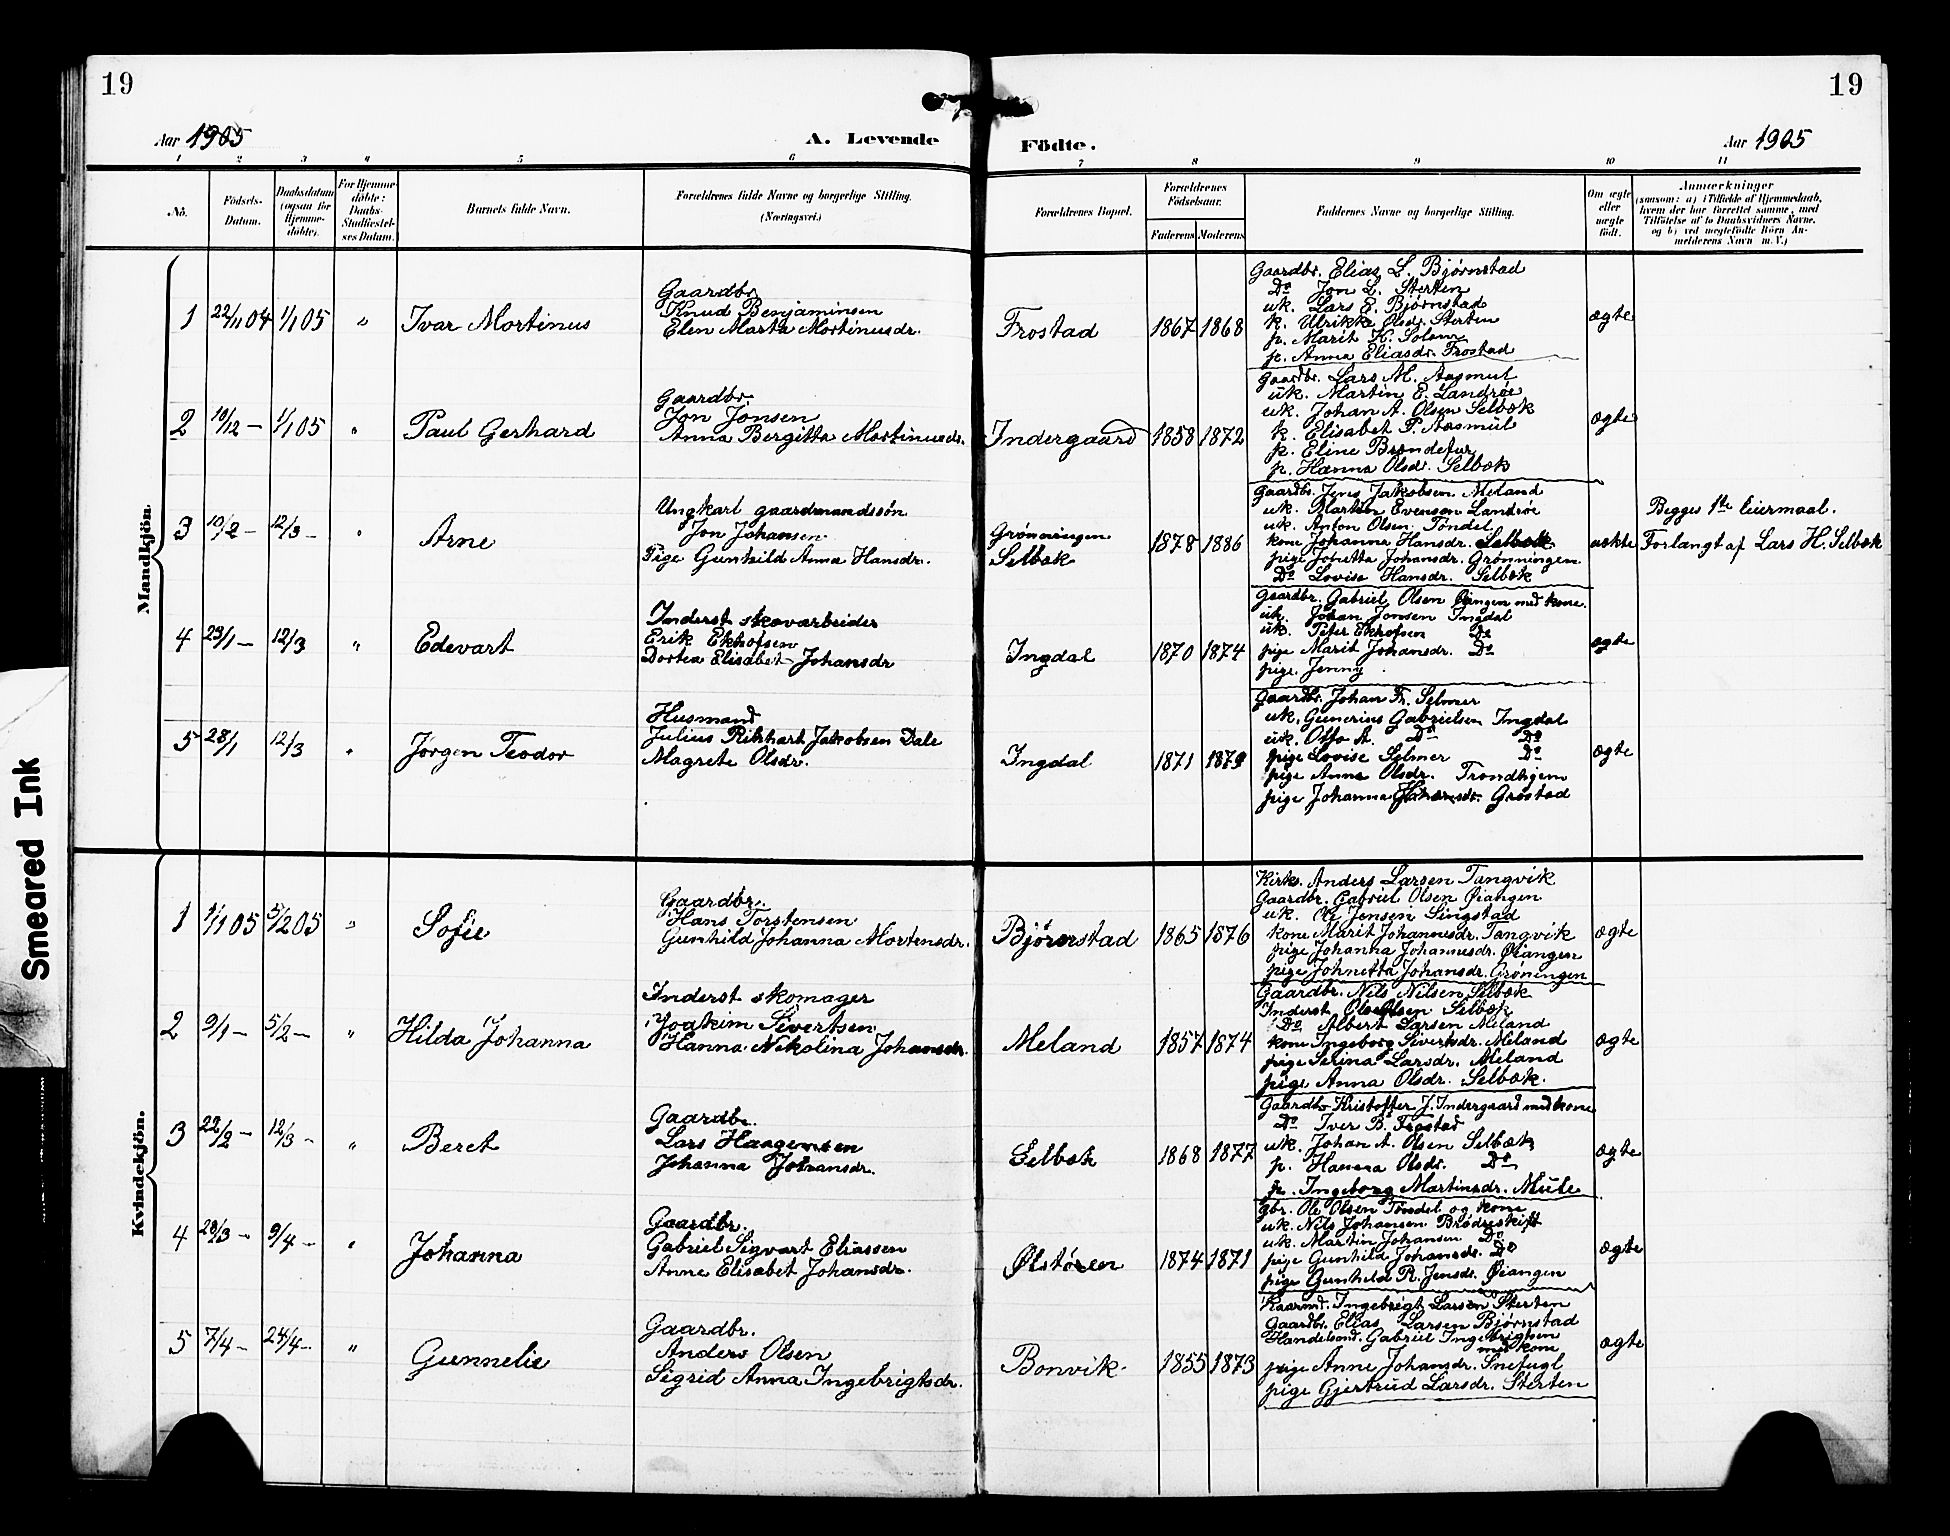 19
19
Aar 1905
A. Levende Födte.
Aar 1905
1 2 3 4 5 6 7 8 9 10 11
No.
Födsels-Datum.
Daabsdatum (ogsaa for Hjemme-döbte).
For Hjemme-döbte: Daabs-Stadfæstel-ses Datum.
Barnets fulde Navn.
Forældrenes fulde Navne og borgerlige Stilling. (Næringsvei.)
Forældrenes Bopæl.
Forældrenes Födselsaar.
Faderens Moderens
Faddernes Navne og borgerlige Stilling.
Om ægte eller uægte födt.
Anmærkninger
(saasom: a) i Tilfælde af Hjemmedaab, hvem der har forrettet samme, med Tilföielse af to Daabsvidners Navne, og b) ved uægtefödte Börn An-melderens Navn m. V.)
Mandkjön.
1 22/11 04 1/1 05 " Ivar Mortinus
Gaardbr.
Knud Benjaminsen
Elen Marta Mortinusdr.
Frostad 1867 1868
Gaardbr. Elias L. Bjørnstad
Do Jon L. Sterten
uk. Lars E. Bjørnstad
k. Ulrikke Olsdr. Sterten
p. Marit K. Solem
p. Anna Eliasdr. Frostad
ægte
2 10/12 – 1/1 05 " Paul Gerhard
Gaardbr.
Jon Jonsen
Anna Bergitta Mortinusdr.
Indergaard 1858 1872
Gaardbr. Lars M. Aasmul
uk. Martin E. Landrøe
uk. Johan A. Olsen Selbæk
k. Elisabet P. Aasmul
p. Eline
p. Hanna Olsdr. Selbæk
ægte
3 10/2 – 12/3 – " Arne
Ungkarl gaardmandssøn
Jon Johansen
Pige Gunhild Anna Hansdr.
Grønningen
Selbæk
1878 1886
Gaardbr. Jens Jakobsen Meland
uk. Martin Evensen Landrøe
uk. Anton Olsen Tøndel
kone Johanna Hansdr. Selbæk
pige Jonetta Johansdr. Grønningen
Do Lovise Hansdr. Selbæk
uækte
Begges 1ste leiermaal.
Forlangt af Lars H. Selbæk
4 23/1 – 12/3 " Edevart
Inderst skovarbeider
Erik Ekhofsen
Dortea Elisabet Johansdr
Ingdal 1870 1874
Gaardbr. Gabriel Olsen Øiangen med kone.
uk. Johan Jonsen Ingdal
uk. Peter Ekhofsen Do
pige Marit Johansdr. Do
pige Jenny
ægte
5 28/1 12/3 " Jørgen Teodor
Husmand
Julius Rikhart Jakobsen Dale
Magrete Olsdr.
Ingdal 1871 1879
Gaardbr. Johan Fr. Selmer
uk. Gunerius Gabrielsen Ingdal
uk. Otto A. Do Do
pige Lovise Selmer Do
pige Anna Olsdr. Trondhjem
pige Johanna Grøstad
ægte
Kvindekjön.
1 1/1 05 5/2 05 " Sofie
Gaardbr.
Hans Torstensen
Gunhild Johanna Mortensdr.
Bjørnstad 1865 1876
Kirks. Anders Larsen Tangvik
Gaardbr. Gabriel Olsen Øiangen
uk. Ole Jensen Singstad
kone Marit Johannesdr. Tangvik
pige Johanna Johannesdr. Øiangen
pige Johnetta Johansdr. Grøningen
ægte
2 9/1 – 5/2 – " Hilda Johanna
Inderst skomager
Joakim Sivertsen
Hanna Nikolina Johansdr.
Meland 1857 1874
Gaardbr. Nils Nilsen Selbæk
Inderst Ole Olsen Selbæk
Do Albert Larsen Meland
kone Ingeborg Sivertsdr. Meland
pige Serina Larsdr. Meland
pige Anna Olsdr. Selbæk.
ægte
3 22/2 – 12/3 – " Beret
Gaardbr.
Lars Haagensen
Johanna Johansdr.
Selbæk 1868 1877
Gaardbr Kristoffer J. Indergaard med kone
Do Iver B. Frostad
uk. Johan A. Olsen Selbæk
p. Hanna Olsdr. Do
p. Ingeborg Martinsdr. Mule
ægte
4 28/3 – 9/4 – " Johanna
Gaardbr.
Gabriel Sigvart Eliassen
Anne Elisabet Johansdr.
Ølstøren 1874 1871
gbr. Ole Olsen Tøndel og kone
uk. Nils Johansen Brødreskift
uk. Martin Johansen Do
pige Gunhild Johansdr. Do
pige Gunhild R. Jensdr. Øiangen
ægte
5 7/4 – 24/4 – " Gunnelie
Gaardbr.
Anders Olsen
Sigrid Anna Ingebrigtsdr.
Bonvik 1855 1873
Kaarmd. Ingebrigt Larsen Sterten
Gaardbr. Elias Larsen Bjørnstad
Handelsmd. Gabriel Ingebrigtsen
med kone
pige Anne Johansdr. Snefugl
pige Gjertrud Larsdr. Sterten
ægte
Smeared Ink